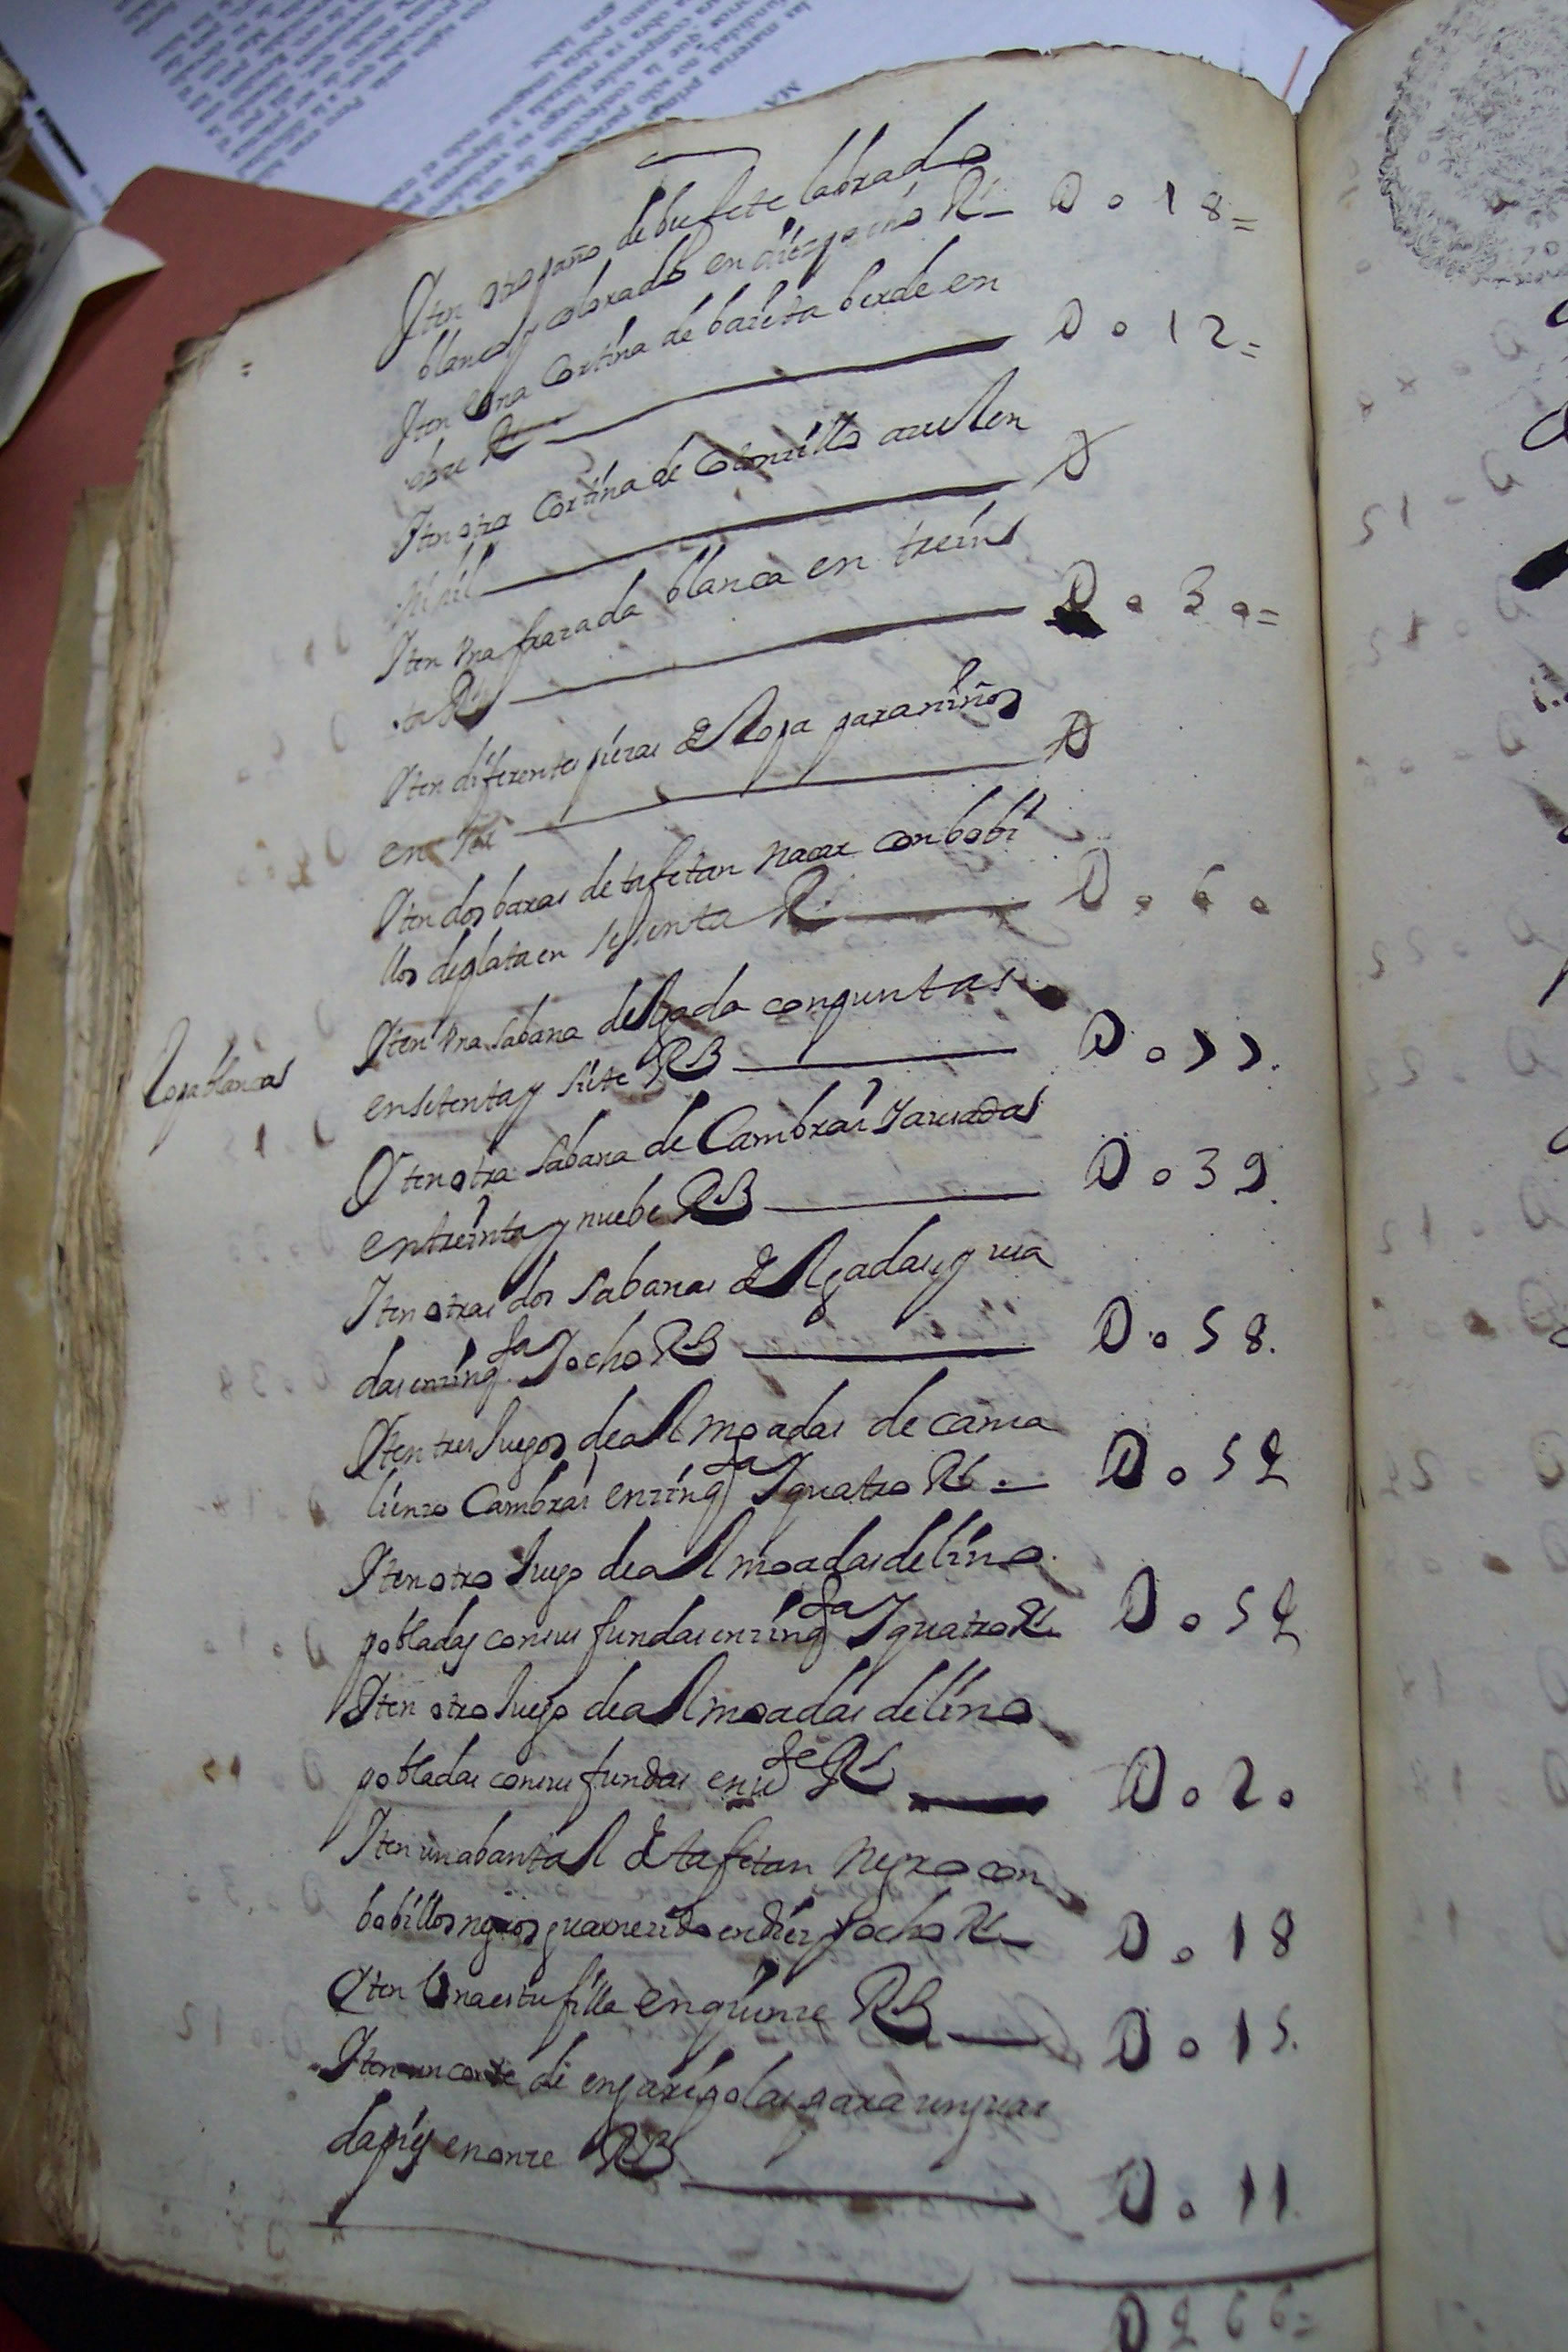 Iten otro paño de bufete labrado
blanco y colorado en diez y ocho Rs — D o 18=
Iten Una Cortina de baieta berde en
doze Rs — D o 12=
Iten otra Cortina de azul en
nihil — D
Iten Vna frazada blanca en trein
ta Rs — D o 30=
Iten diferentes piezas de Ropa para niños
en — D
Iten dos baras de tafetan nacar con bobi
llos de plata en sesenta Rs — D o 60
Ropa blanca
Iten Vna sabana delgada con puntas
en setenta y siete RS — D o 77.
Iten otra sabana de Cambrai
en treinta y nuebe RS — D o 39.
Iten otras dos sabanas delgadas
das en zinqta y ocho RS — D o 58.
Iten tres Juegos de almoadas de cama
lienzo Cambrai en zinqta y quatro Rs. — D o 54
Iten otro Juego de almoadas de lino
pobladas con sus fundas en zinqta y quatro Rs — D o 54
Iten otro Juego de almoadas de lino
pobladas con sus fundas en Rs — D o 20
Iten un abantal de tafetan negro con
bobillos negros guarnezido en diez y ocho Rs — D o 18
Iten Una estufilla en quinze RS — D o 15.
Iten un corte de enparigolas para un guar
dapies en onze RS — D o 11.
D 466=